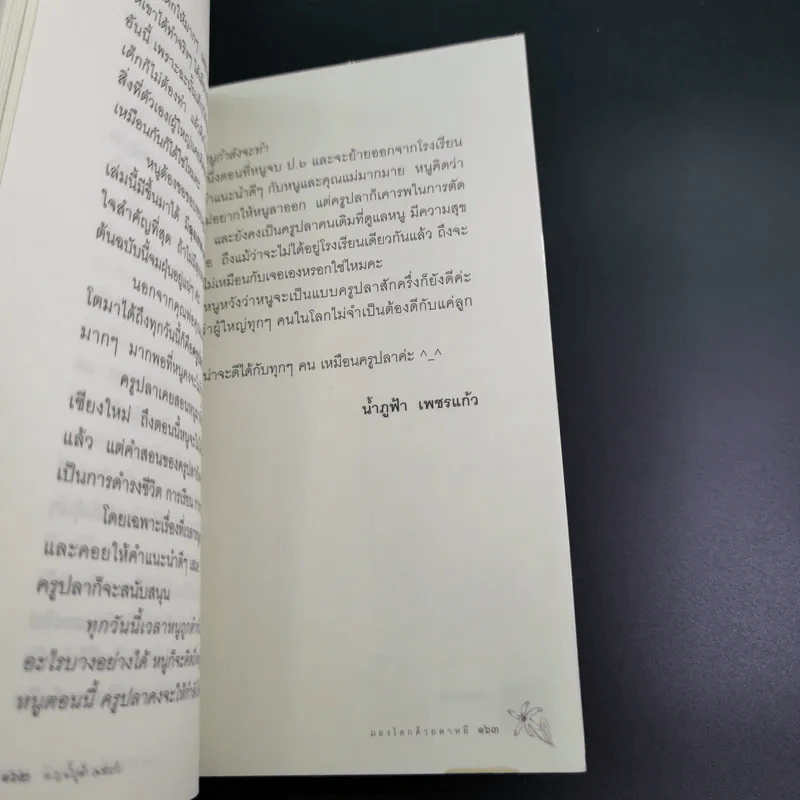 อันนี้ เพราะฉะนั้น
เด็กก็ไม่ต้องทำ
สิ่งที่ตัวเอง(ผู้ใหญ่)
เหมือนกันก็ได้ใช่ไหมคะ
หนูต้องขอขอบพระคุณ
เล่มนี้มีขึ้นมาได้
ใจสำคัญที่สุด ถ้าไม่มี
ต้นฉบับนี้จมฝุ่นอยู่
นอกจากคุณพ่อ
โตมาได้ถึงทุกวันนี้ก็คือ
มากๆ มากพอที่หนูคงจะ
ครูปลาเคยสอนหนู
เชียงใหม่ ถึงตอนนี้หนูจะ
แล้ว แต่คำสอนของครูปลา
เป็นการดำรงชีวิต การเรียน
โดยเฉพาะเรื่องที่เวลา
และคอยให้คำแนะนำดีๆ
ครูปลาก็จะสนับสนุน
ทุกวันนี้เวลาหนูถูก
อะไรบางอย่างได้ หนูก็จะคิด
หนูตอนนี้ ครูปลาคงจะให้กำลัง
๑๖๒
นูกำลังจะทำ
นึ่งตอนที่หนูจบ ป.๖ และจะย้ายออกจากโรงเรียน
ำแนะนำดีๆ กับหนูและคุณแม่มากมาย หนูคิดว่า
ม่อยากให้หนูลาออก แต่ครูปลาก็เคารพในการตัด
และยังคงเป็นครูปลาคนเดิมที่ดูแลหนู มีความสุข
อ ถึงแม้ว่าจะไม่ได้อยู่โรงเรียนเดียวกันแล้ว ถึงจะ
ไม่เหมือนกับเจอเองหรอกใช่ไหมคะ
หนูหวังว่าหนูจะเป็นแบบครูปลาสักครึ่งก็ยังดีค่ะ
ว่าผู้ใหญ่ทุกๆ คนในโลกไม่จำเป็นต้องดีกับแค่ลูก
น่าจะดีได้กับทุกๆ คน เหมือนครูปลาค่ะ ^_^
น้ำภูฟ้า เพชรแก้ว
มองโลกด้วยตาหยี ๑๖๓